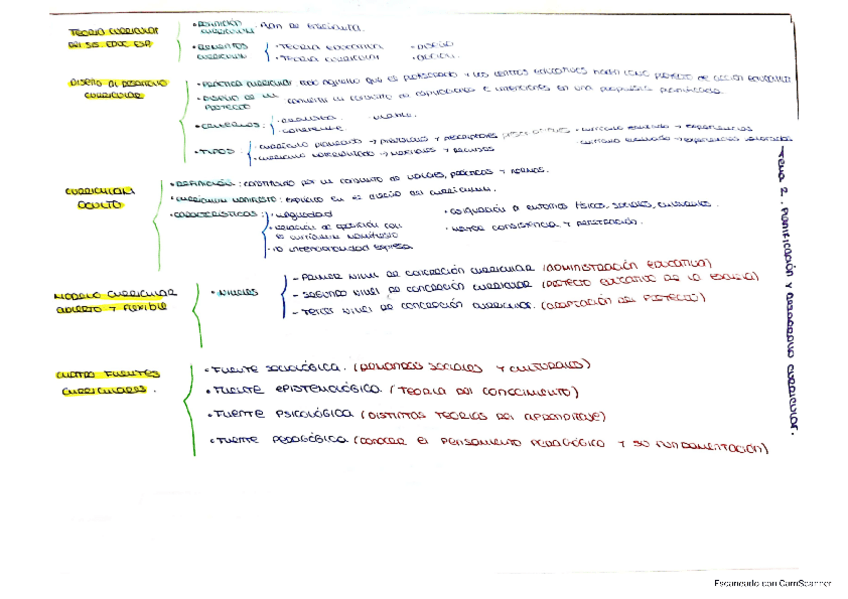 TEORÍA CURRICULAR
DEL SIS. EDUC. ESP.
• DEFINICIÓN CURRICULUM: PLAN DE
• ELEMENTOS CURRICULUM
• TEORIA EDUCATIVA
• TEORIA CURRICULAR
• DISEÑO
• ACCIÓN.
DISEÑO AL DESARROLLO
CURRICULAR
• PRÁCTICA CURRICULAR: TODO AQUELLO QUE EL PROFESORADO Y LOS CENTROS EDUCATIVOS COMO PROYECTO DE ACCIÓN EDUCATIVA
• DISEÑO DE UN PROYECTO
CONVERTIR UN CONJUNTO DE ASPIRACIONES E INTENCIONES EN UNA PROPUESTA
• CRITERIOS:
• COHERENTE
• TIPOS
• CURRÍCULO → Y
• CURRÍCULO → MATERIALES Y RECURSOS
CURRICULUM
OCULTO
• DEFINICIÓN: CONSTITUIDO POR UN CONJUNTO DE VALORES, PRÁCTICAS Y NORMAS.
• CURRICULUM MANIFIESTO: EXPLÍCITO EN EL DISEÑO DEL CURRICULUM.
• CARACTERÍSTICAS:
• VAGUEDAD
• RELACIÓN DE OPOSICIÓN CON
EL CURRÍCULUM MANIFIESTO
• NO INTENCIONALIDAD EXPRESA
A ENTORNOS FÍSICOS, SOCIALES, CULTURALES.
• MAYOR CONSISTENCIA Y PERSISTENCIA.
MODELO CURRICULAR
ABIERTO Y FLEXIBLE
• NIVELES
- PRIMER NIVEL DE CONCRECIÓN CURRICULAR (ADMINISTRACIÓN EDUCATIVA)
- SEGUNDO NIVEL DE CONCRECIÓN CURRICULAR (PROYECTO EDUCATIVO DE LA ESCUELA)
- TERCER NIVEL DE CONCRECIÓN CURRICULAR. (ADAPTACIÓN DEL PROYECTO)
CUATRO FUENTES
CURRICULARES.
• FUENTE SOCIOLÓGICA. (DEMANDAS SOCIALES Y CULTURALES)
• FUENTE EPISTEMOLÓGICA. (TEORIA DEL CONOCIMIENTO)
• FUENTE PSICOLÓGICA (DISTINTAS TEORÍAS DEL APRENDIZAJE)
• FUENTE PEDAGÓGICA (CONOCER EL PENSAMIENTO PEDAGÓGICO Y SU FUNDAMENTACIÓN)
TEMA 2. PLANIFICACIÓN Y DESARROLLO CURRICULAR.
Escaneado con CamScanner